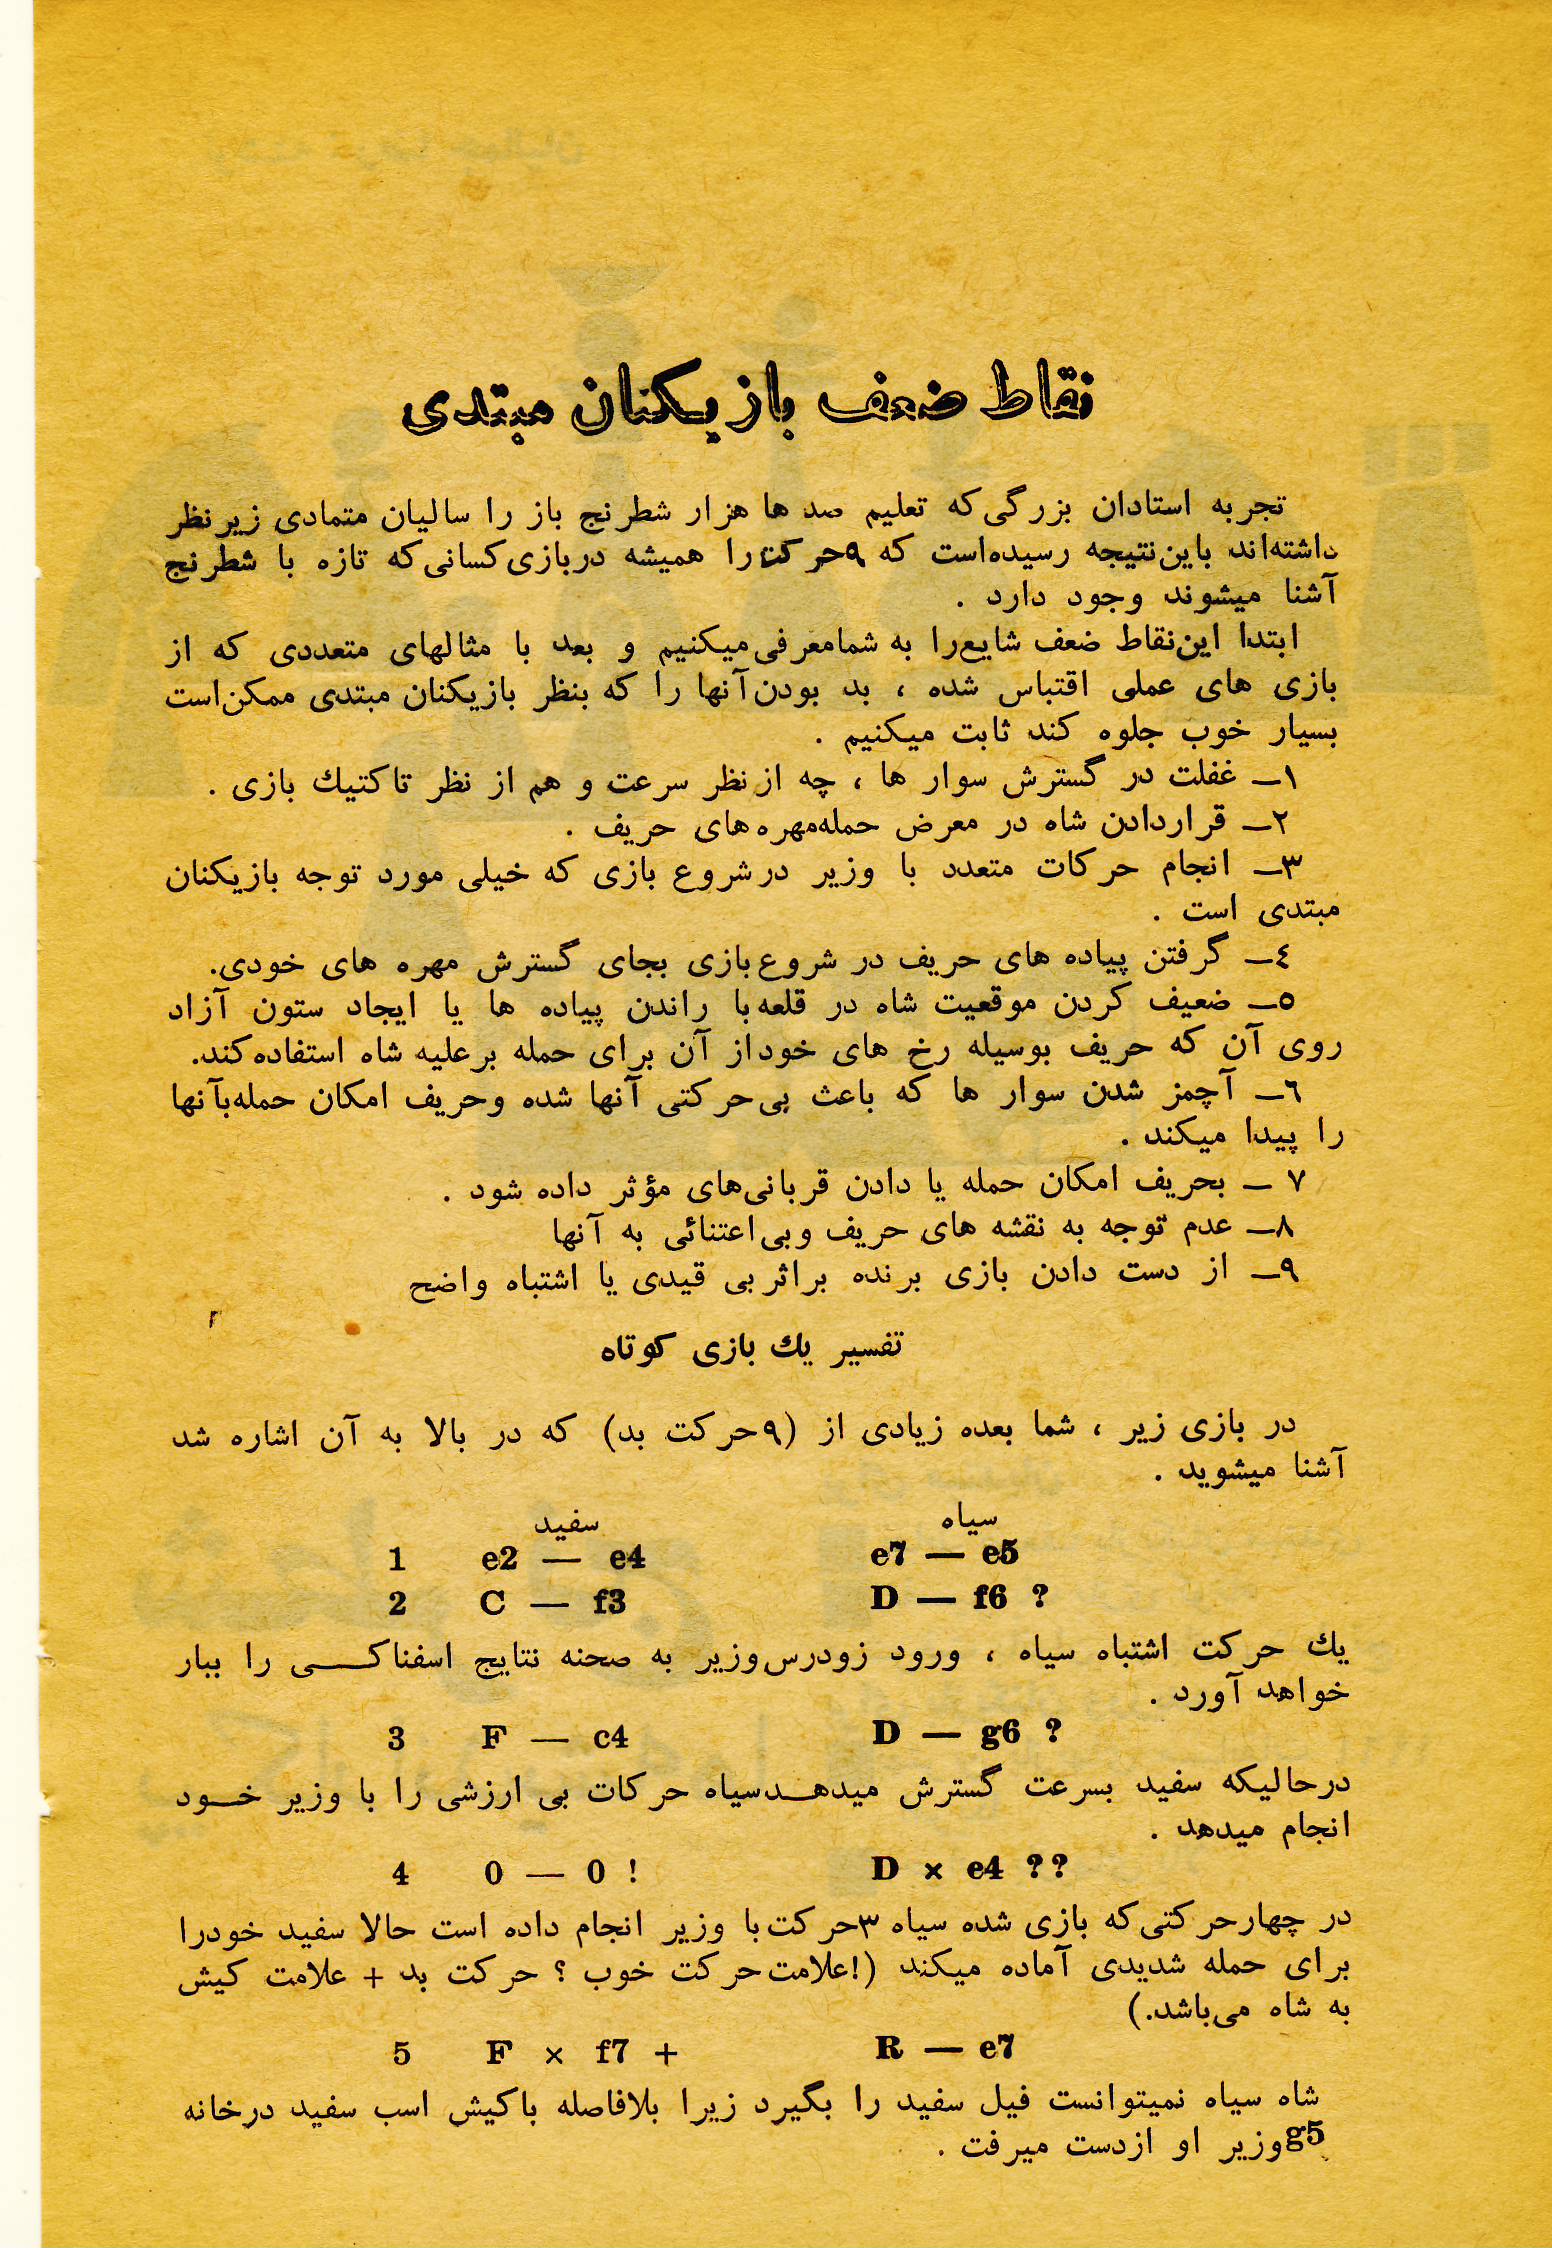 نقاط ضعف بازیکنان مبتدی
تجربه استادان بزرگی که تعلیم صد ها هزار شطرنج باز را سالیان متمادی زیر نظر
داشته‌اند باین نتیجه رسیده‌است که ۹ حرکت را همیشه در بازی کسانی که تازه با شطرنج
آشنا میشوند وجود دارد .
ابتدا این نقاط ضعف شایع را به شما معرفی میکنیم و بعد با مثالهای متعددی که از
بازی های عملی اقتباس شده ، بد بودن آنها را که بنظر بازیکنان مبتدی ممکن‌است
بسیار خوب جلوه کند ثابت میکنیم .
۱ــ غفلت در گسترش سوار ها ، چه از نظر سرعت و هم از نظر تاکتیك بازی .
۲ــ قراردادن شاه در معرض حمله مهره های حریف .
۳ــ انجام حرکات متعدد با وزیر در شروع بازی که خیلی مورد توجه بازیکنان
مبتدی است .
٤ــ گرفتن پیاده های حریف در شروع بازی بجای گسترش مهره های خودی.
٥ــ ضعیف کردن موقعیت شاه در قلعه با راندن پیاده ها یا ایجاد ستون آزاد
روی آن که حریف بوسیله رخ های خود از آن برای حمله بر علیه شاه استفاده کند.
٦ــ آچمز شدن سوار ها که باعث بی حرکتی آنها شده و حریف امکان حمله بآنها
را پیدا میکند .
۷ ــ بحریف امکان حمله یا دادن قربانی‌های مؤثر داده شود .
۸ــ عدم توجه به نقشه های حریف و بی اعتنائی به آنها
۹ــ از دست دادن بازی برنده بر اثر بی قیدی یا اشتباه واضح
تفسیر یك بازی کوتاه
در بازی زیر ، شما بعده زیادی از (۹ حرکت بد) که در بالا به آن اشاره شد
آشنا میشوید .
سفید سیاه
1 e2 — e4 e7 — e5
2 C — f3 D — f6 ?
یك حرکت اشتباه سیاه ، ورود زودرس وزیر به صحنه نتایج اسفناکـــی را ببار
خواهد آورد .
3 F — c4 D — g6 ?
درحالیکه سفید بسرعت گسترش میدهــد سیاه حرکات بی ارزشی را با وزیر خــود
انجام میدهد .
4 0 — 0 ! D × e4 ? ?
در چهار حرکتی که بازی شده سیاه ۳ حرکت با وزیر انجام داده است حالا سفید خودرا
برای حمله شدیدی آماده میکند (! علامت حرکت خوب ؟ حرکت بد + علامت کیش
به شاه می‌باشد.)
5 F × f7 + R — e7
شاه سیاه نمیتوانست فیل سفید را بگیرد زیرا بلافاصله باکیش اسب سفید درخانه
g5 وزیر او ازدست میرفت .